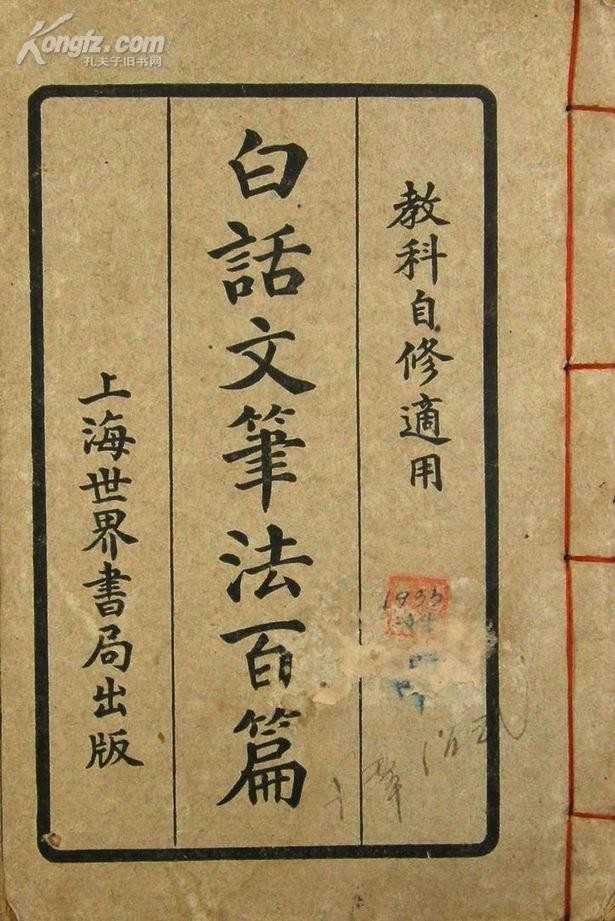 Kongfz.com
孔夫子旧书网
教科自修適用
白話文筆法百篇
上海世界書局出版